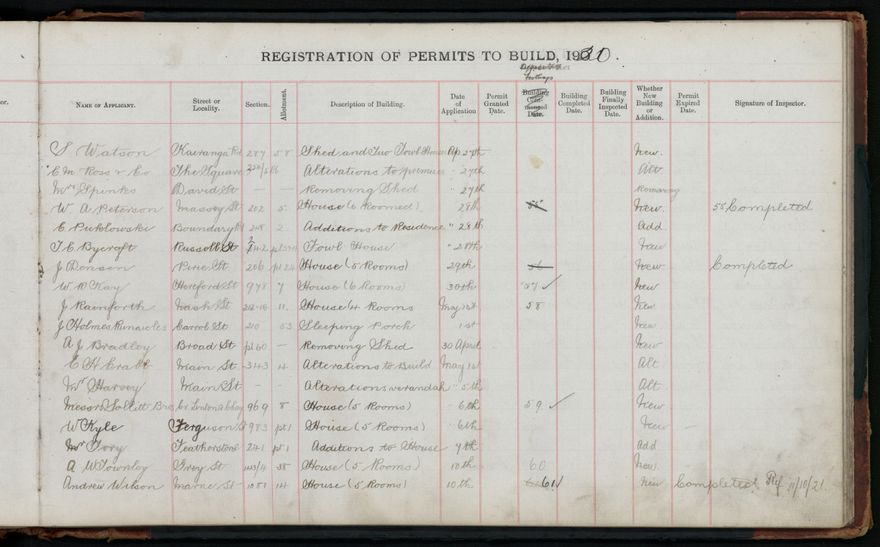 REGISTRATION OF PERMITS TO BUILD, 1930.
or.
NAME OF APPLICANT. Street or Locality. Section. Allotment. Description of Building. Date of Application Permit Granted Date. Building Com-menced Date. Building Completed Date. Building Finally Inspected Date. Whether New Building or Addition. Permit Expired Date. Signature of Inspector.
S Watson Kairanga Rd 287 58 Shed and Two Fowl Houses Ap 27th New.
C M Ross & Co The Square Alterations to premises " 27th Alt
Mrs Spinks David St — — Removing Shed " 27th Removing
W. A Peterson Massey St 202 5 House (6 Roomed) 28th 55 New. 55 Completed
Boundary Rd 2 Additions to Residence " 28th Add
T. C Bycroft Russell St Fowl House " 28th New
J Pine St. 206 pt 24 House (5 Rooms) 29th 56 New Completed
W. R Kay Hereford St 978 7 House (6 Rooms) 30th 57 ✓ New
J Rainforth Nash St 11. House 4 Rooms May 1st 58 New
J Holmes Carrol St 210 53 Sleeping Porch 1st New
A J Bradley Broad St pt 60 — Removing Shed 30 April New
C H Crabb Main St 343 4 Alterations to Build May 1st Alt
Mr Harvey Main St - - Alterations verandah " 5th Alt
Messrs Bros 969 8 House (5 Rooms) - 6th 59 ✓ New
W Kyle Ferguson St 983 pt 1 House (5 Rooms) - 6th New —
Mr Tory Featherston 241 pt 1 Additions to House 9th Add
A W Townley Grey St 38 House (5 Rooms) 10th 60 New.
Andrew Wilson Marne St 1051 14 House (5 Rooms) 10th 61 New Completed 11/10/21.